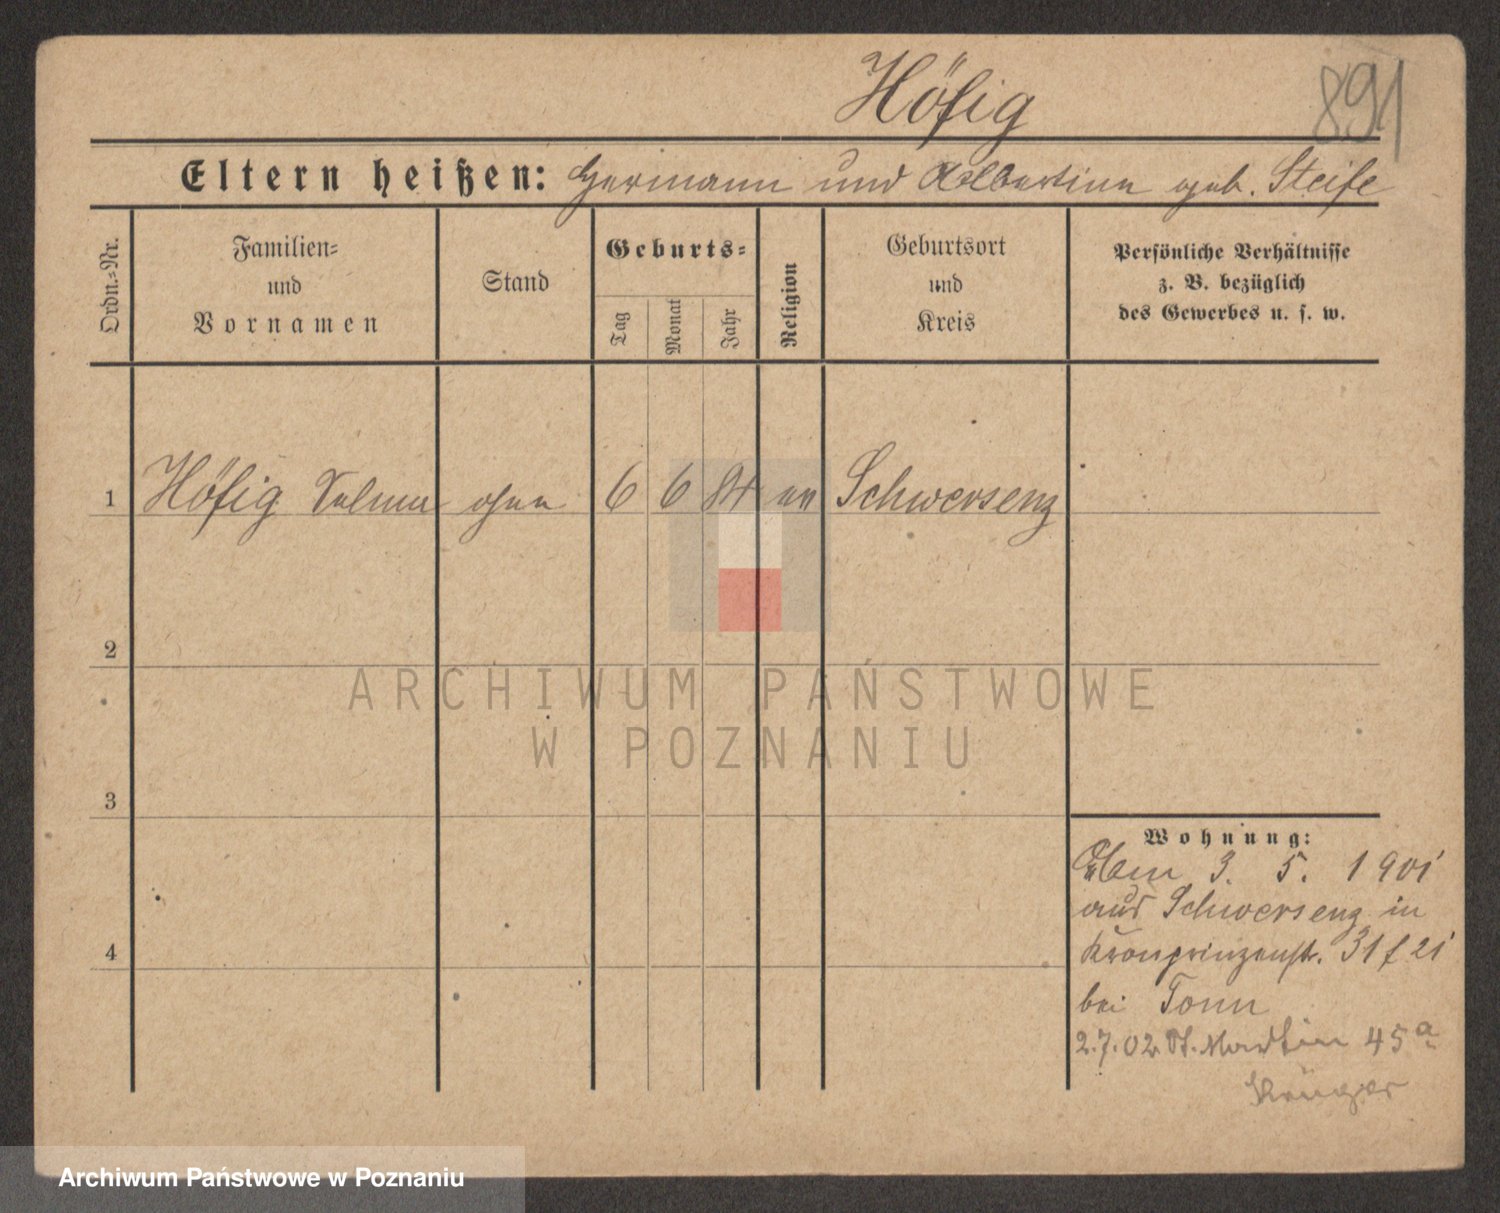 Höfig 891
Eltern heißen: Hermann und Albertine geb. Steife
Ordn.=Nr.
Familien=
und
Vornamen
Stand
Geburts=
Tag
Monat
Jahr
Religion
Geburtsort
und
Kreis
Persönliche Verhältnisse
z. B. bezüglich
des Gewerbes u. s. w.
1 Höfig Selma ohne 6 6 84 ev Schwersenz
2
3
4
Wohnung:
3. 5. 1901
aus Schwersenz in
Kronprinzenstr. 31
bei Tonn
2.7.02 St. Martin 45a
Krüger
ARCHIWUM PAŃSTWOWE
W POZNANIU
Archiwum Państwowe w Poznaniu